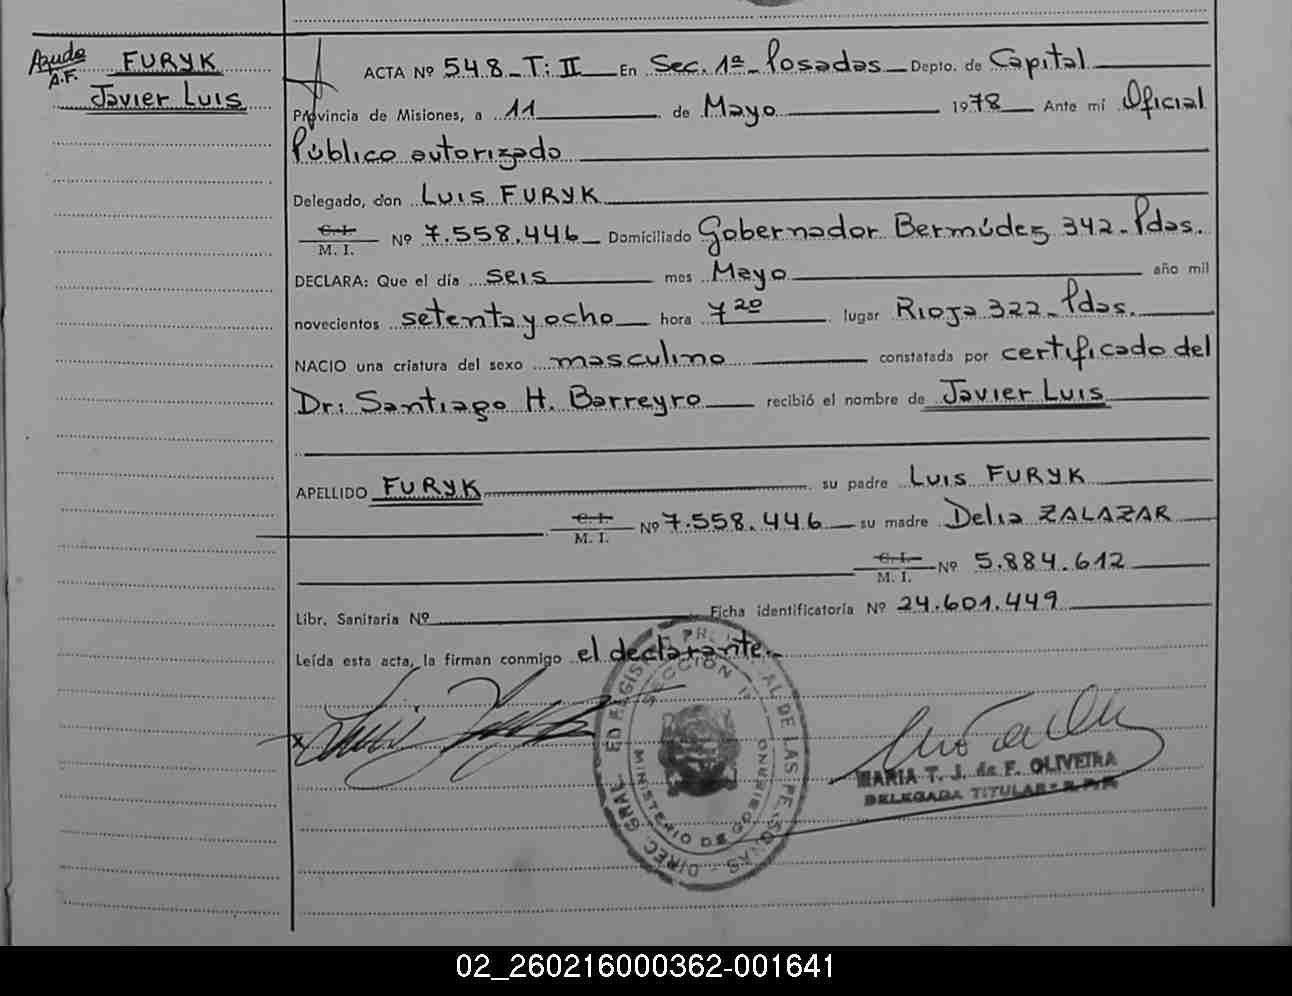 Azude FURYK
A.F.
Javier Luis
ACTA Nº 548_T: II En Sec. 1ª Posadas Depto. de Capital
Provincia de Misiones, a 11 de Mayo 1978 Ante mí Oficial
Público autorizado
Delegado, don Luis FURYK
C. I.
M. I. Nº 7.558.446 Domiciliado Gobernador Bermúdez 342_Pdas.
DECLARA: Que el día seis mes Mayo año mil
novecientos setenta y ocho hora 7 20 lugar Rioja 322_Pdas.
NACIO una criatura del sexo masculino constatada por certificado del
Dr: Santiago H. Barreyro recibió el nombre de Javier Luis
APELLIDO FURYK su padre Luis FURYK
C. I.
M. I. Nº 7.558.446 su madre Delia ZALAZAR
C. I.
M. I. Nº 5.884.612
Libr. Sanitaria Nº Ficha identificatoria Nº 24.601.449
Leída esta acta, la firman conmigo el declarante._
SECCION 1ª
MINISTERIO DE GOBIERNO
MARIA T. J. de F. OLIVEIRA
DELEGADA TITULAR
02_260216000362-001641